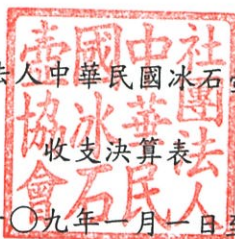 法人中華民國冰石壺
收支決算表
一○九年一月一日至
社團法人
中華民
國冰石
壺協會